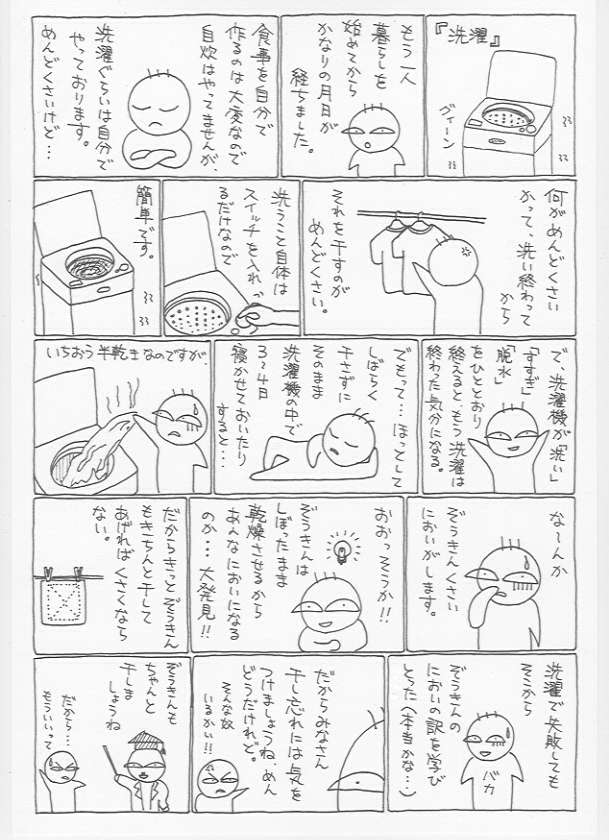 『洗濯』
ヴィーン
もう一人
暮らしを
始めてから
かなりの月日が
経ちました。
食事を自分で
作るのは大変なので
自炊はやってませんが、
洗濯ぐらいは自分で
やっております。
めんどくさいけど…
何がめんどくさい
かって、洗い終わって
から
それを干すのが
めんどくさい。
洗うこと自体は
スイッチを入れ
るだけなので
簡単です。
で、洗濯機が「洗い」
「すすぎ」
「脱水」
をひととおり
終えると、もう洗濯は
終わった気分になる。
でもって…ほっとして
しばらく
干さずに
そのまま
洗濯機の中で
3〜4日
寝かせておいたり
すると…
いちおう半乾きなのですが、
な〜んか
ぞうきんくさい
においがします。
おおっそうか!!
ぞうきんは
しぼったまま
乾燥させるから
あんなにおいになる
のか…大発見!!
だからきっとぞうきん
もきちんと干して
あげればくさくなら
ない。
洗濯で失敗しても
そこから
ぞうきんの
においの訳を学び
とった(本当かな…)
バカ
だからみなさん
干し忘れには気を
つけましょうね、めん
どうだけれど。
そんな奴
いるかい!!
ぞうきんも
ちゃんと
干しま
しょうね
だから…
もういいって